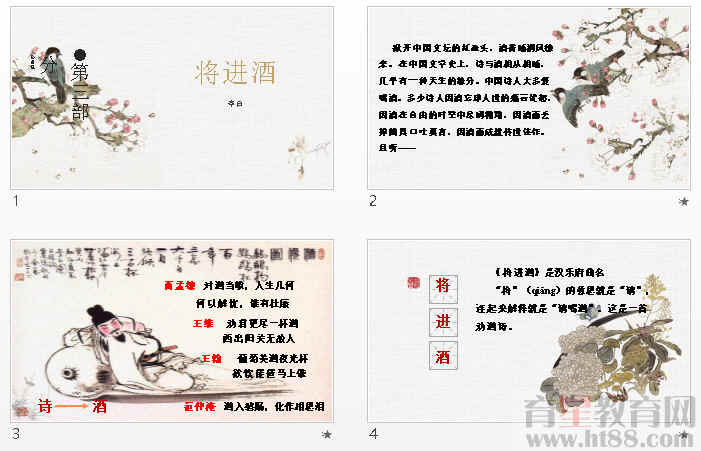 第三部
分
将进酒
李白
1
掀开中国文坛的红盖头,酒香飘洒风缘
来。在中国文学史上,诗与酒相从相随,
几乎有一种天生的缘分。中国诗人大多爱
喝酒。多少诗人因酒忘却人世的痛苦忧愁,
因酒在自由的时空中尽情翱翔,因酒而丢
掉面具口吐真言,因酒而成就传世佳作。
且听——
2
曹孟德 对酒当歌,人生几何
何以解忧,唯有杜康
王维 劝君更尽一杯酒
西出阳关无故人
王翰 葡萄美酒夜光杯
欲饮琵琶马上催
范仲淹 酒入愁肠,化作相思泪
诗
酒
3
将
进
酒
《将进酒》是汉乐府曲名
“将”(qiāng)的意思就是“请”,
连起来解释就是“请喝酒”。这是一首
劝酒诗。
4
育星教育网
www.ht88.com